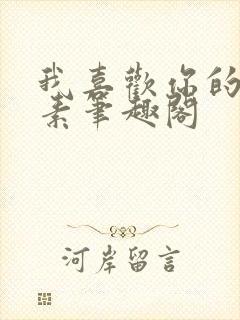 我喜歡你的
素筆趣閣
河岸留言